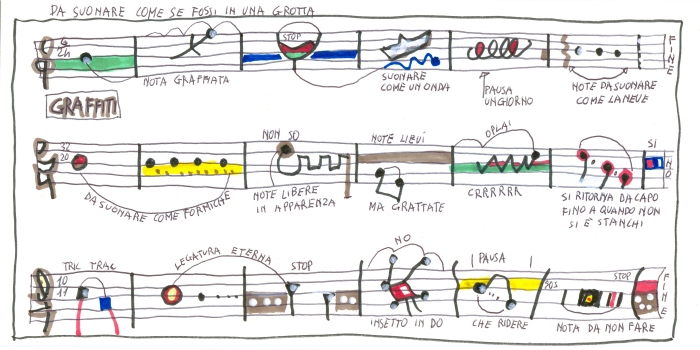 DA SUONARE COME SE FOSSI IN UNA GROTTA
STOP
NOTA GRAFFIATA
SUONARE
COME UN ONDA
PAUSA
UN GIORNO
NOTE DA SUONARE
COME LA NEVE
FINE
GRAFFITI
32
20
NON SO
NOTE LIEVI
OPLA!
SI
NO
DA SUONARE COME FORMICHE
NOTE LIBERE
IN APPARENZA
MA GRATTATE
CRRRRRR
SI RITORNA DA CAPO
FINO A QUANDO NON
SI È STANCHI
TRIC TRAC
10
11
LEGATURA ETERNA
STOP
NO
PAUSA
STOP
FINE
INSETTO IN DO
CHE RIDERE
NOTA DA NON FARE